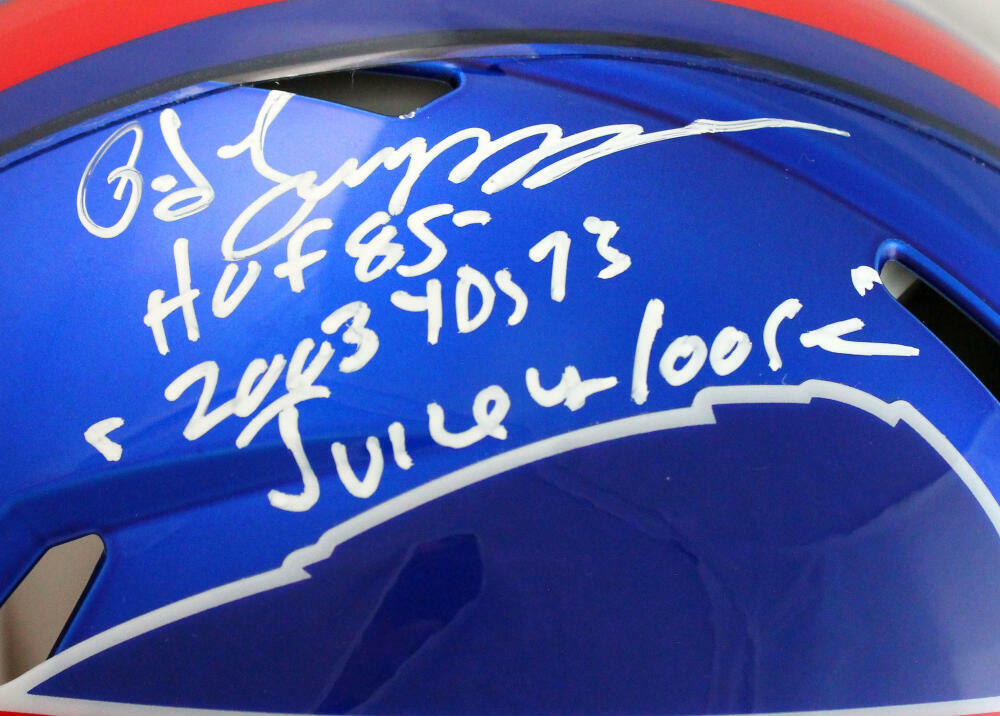 O.J. Simpson
HOF 85-
2003 YDS 73
"Juice 4 loose"